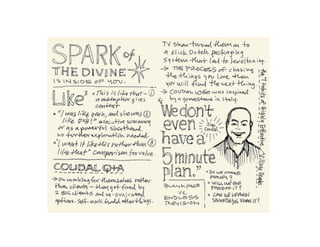 SPARK of
THE DIVINE
IS INSIDE OF YOU.
Like
"This is like that" -
a metaphor gives
context
"I was like yeah, and she was
like duh!" as
or as a powerful shorthand.
no further explanation needed.
"I want it like this rather than
like that" comparison for value.
COUDAL Q+A
→ On working for themselves rather
than clients - they got fired by
2 BIG clients and re-evaluated
options. Self-work fueled other things.
TV show turned them on to
a slick Dutch packaging
system that led to
→ THE PROCESS of chasing
the things you love then
you will find the next thing
→ COUDAL LOGO was inspired
by a gravestone in Italy.
"We don't
even
have a
5 minute
plan."
JIM
COUDAL
BLANK PAGE
VS.
ENDLESS
REVISION
• DO WE MAKE
MONEY?
• WILL WE BE
PROUD OF IT?
• CAN WE LEARN
SOMETHING FROM IT?